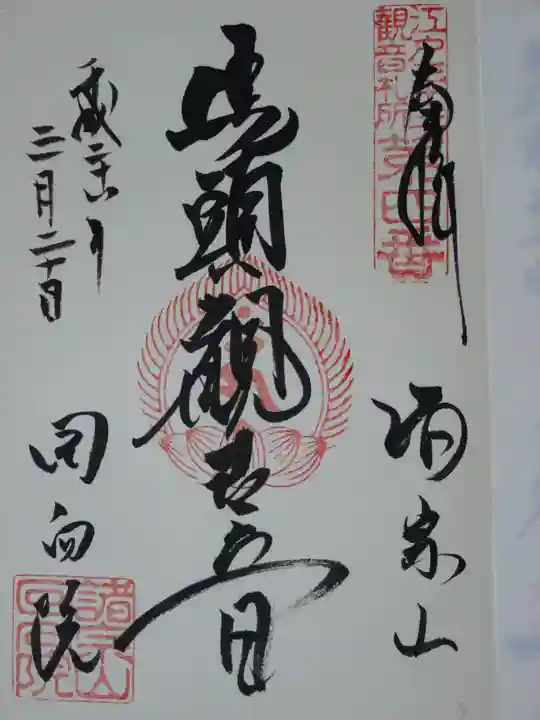 江戸三十三
観音札所第四番
奉拝
諸宗山
馬頭観世音
平成二十八年
三月二十日
回向院
諸宗山
回向院